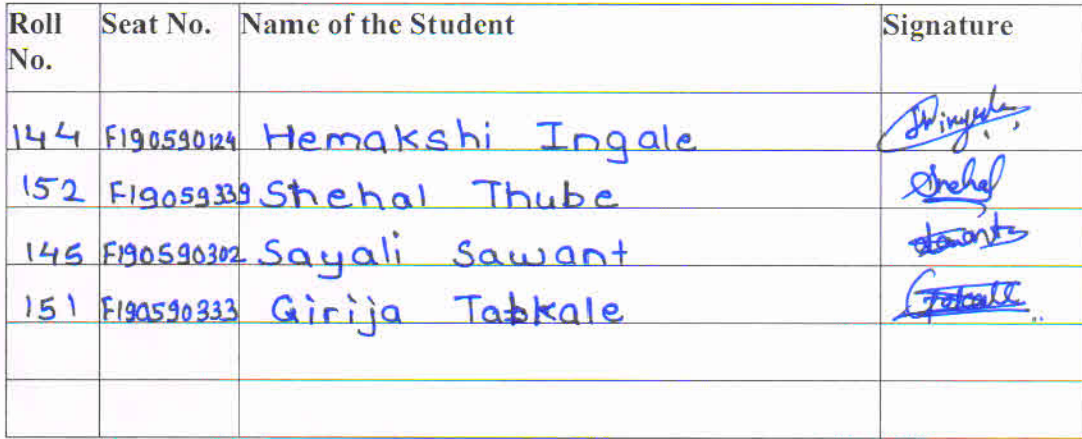 Roll No. Seat No. Name of the Student Signature
144 F190590124 Hemakshi Ingale
152 F19059339 Snehal Thube Snehal
145 F190590302 Sayali Sawant
151 F190590333 Girija Takale